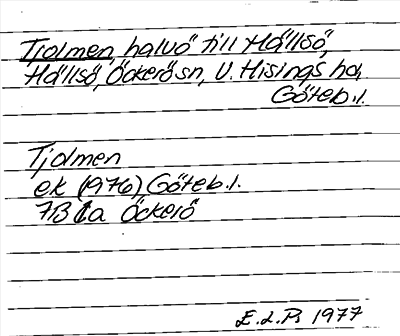 Tjolmen, halvö till Hällsö,
Hällsö, Öckerö sn, V. Hisings hd,
Göteb. l.
Tjolmen
ek (1976) Göteb. l.
7B 1a Öckerö
E. L. P. 1977